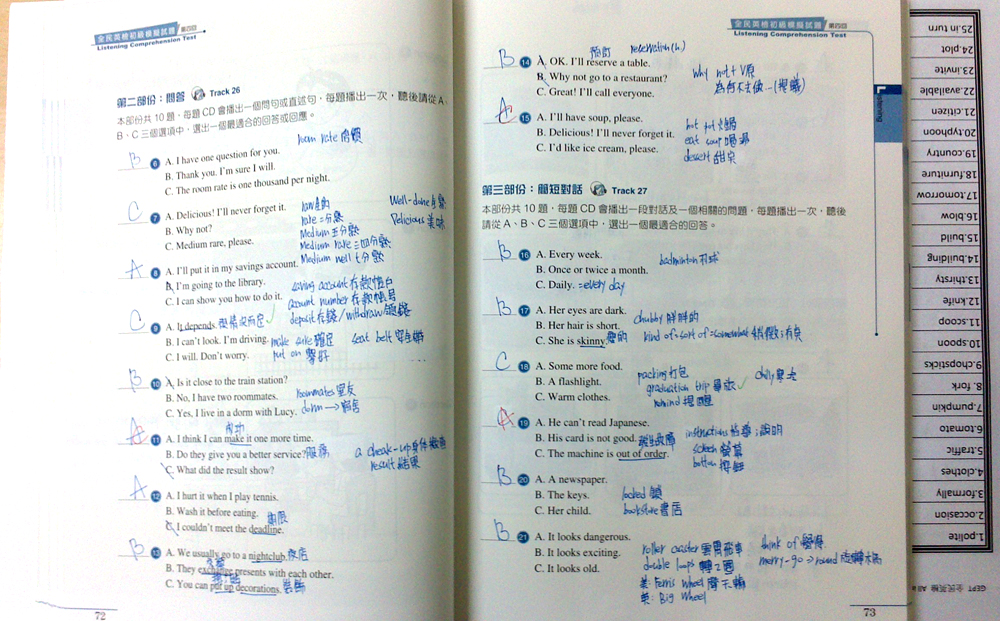 全民英檢初級模擬試題 第四回
Listening Comprehension Test
第二部份：問答 Track 26
本部份共 10 題，每題 CD 會播出一個問句或直述句，每題播出一次，聽後請從 A、
B、C 三個選項中，選出一個最適合的回答或回應。
room rate 房價
B 6 A. I have one question for you.
B. Thank you. I'm sure I will.
C. The room rate is one thousand per night.
C 7 A. Delicious! I'll never forget it.
B. Why not?
C. Medium rare, please.
Well-done
Delicious 美味
rare 三分熟
Medium 五分熟
Medium rare 四分熟
Medium well 七分熟
A 8 A. I'll put it in my savings account.
B. I'm going to the library.
C. I can show you how to do it.
saving account 存款帳戶
account number 存款帳號
deposit 存錢/withdraw 領錢
C 9 A. It depends. 視情況而定
B. I can't look. I'm driving. make sure 確定 seat belt 安全帶
C. I will. Don't worry. put on
B 10 A. Is it close to the train station?
B. No, I have two roommates. roommates 室友
C. Yes, I live in a dorm with Lucy. dorm → 宿舍
成功
A 11 A. I think I can make it one more time.
B. Do they give you a better service? 服務
C. What did the result show?
a check-up 身體檢查
result 結果
A 12 A. I hurt it when I play tennis.
B. Wash it before eating.
期限
C. I couldn't meet the deadline.
B 13 A. We usually go to a nightclub. 夜店
B. They exchange presents with each other.
C. You can put up decorations. 裝飾
72
全民英檢初級模擬試題 第四回
Listening Comprehension Test
預訂 reservation (n.)
B 14 A. OK. I'll reserve a table.
B. Why not go to a restaurant?
C. Great! I'll call everyone.
why not + V原
為何不去做…(提議)
A 15 A. I'll have soup, please.
B. Delicious! I'll never forget it.
C. I'd like ice cream, please.
hot pot 火鍋
eat soup 喝湯
dessert 甜點
Listening
第三部份：簡短對話 Track 27
本部份共 10 題，每題 CD 會播出一段對話及一個相關的問題，每題播出一次，聽後
請從 A、B、C 三個選項中，選出一個最適合的回答。
B 16 A. Every week.
B. Once or twice a month.
C. Daily. = every day
badminton 羽球
B 17 A. Her eyes are dark.
B. Her hair is short.
C. She is skinny. 瘦的
chubby 胖胖的
kind of = sort of = somewhat 稍微；有點
C 18 A. Some more food.
B. A flashlight.
C. Warm clothes.
packing 打包
graduation trip 畢旅
remind 提醒
chilly 寒冷
A 19 A. He can't read Japanese.
B. His card is not good.
C. The machine is out of order.
instructions 指導；說明
screen 螢幕
button 按鈕
B 20 A. A newspaper.
B. The keys.
C. Her child.
locked 鎖
bookstore 書店
B 21 A. It looks dangerous.
B. It looks exciting.
C. It looks old.
roller coaster 雲霄飛車
double loops 轉2圈
美: Ferris Wheel 摩天輪
英: Big Wheel
think of 覺得
merry-go-round 旋轉木馬
73
25.in turn
24.plot
23.invite
22.available
21.citizen
20.typhoon
19.country
18.furniture
17.tomorrow
16.blow
15.build
14.building
13.thirsty
12.knife
11.scoop
10.spoon
9.chopsticks
8. fork
7.pumpkin
6.tomato
5.traffic
4.clothes
3.formally
2.occasion
1.polite
GEPT 全民英檢